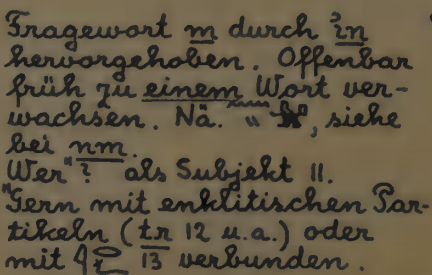 Fragewort m durch in
hervorgehoben. Offenbar
früh zu einem Wort ver-
wachsen. Nä. " , siehe
bei nm.
"Wer"? als Subjekt II.
Gern mit enklitischen Par-
tikeln (tr 12 u.a.) oder
mit 13 verbunden.